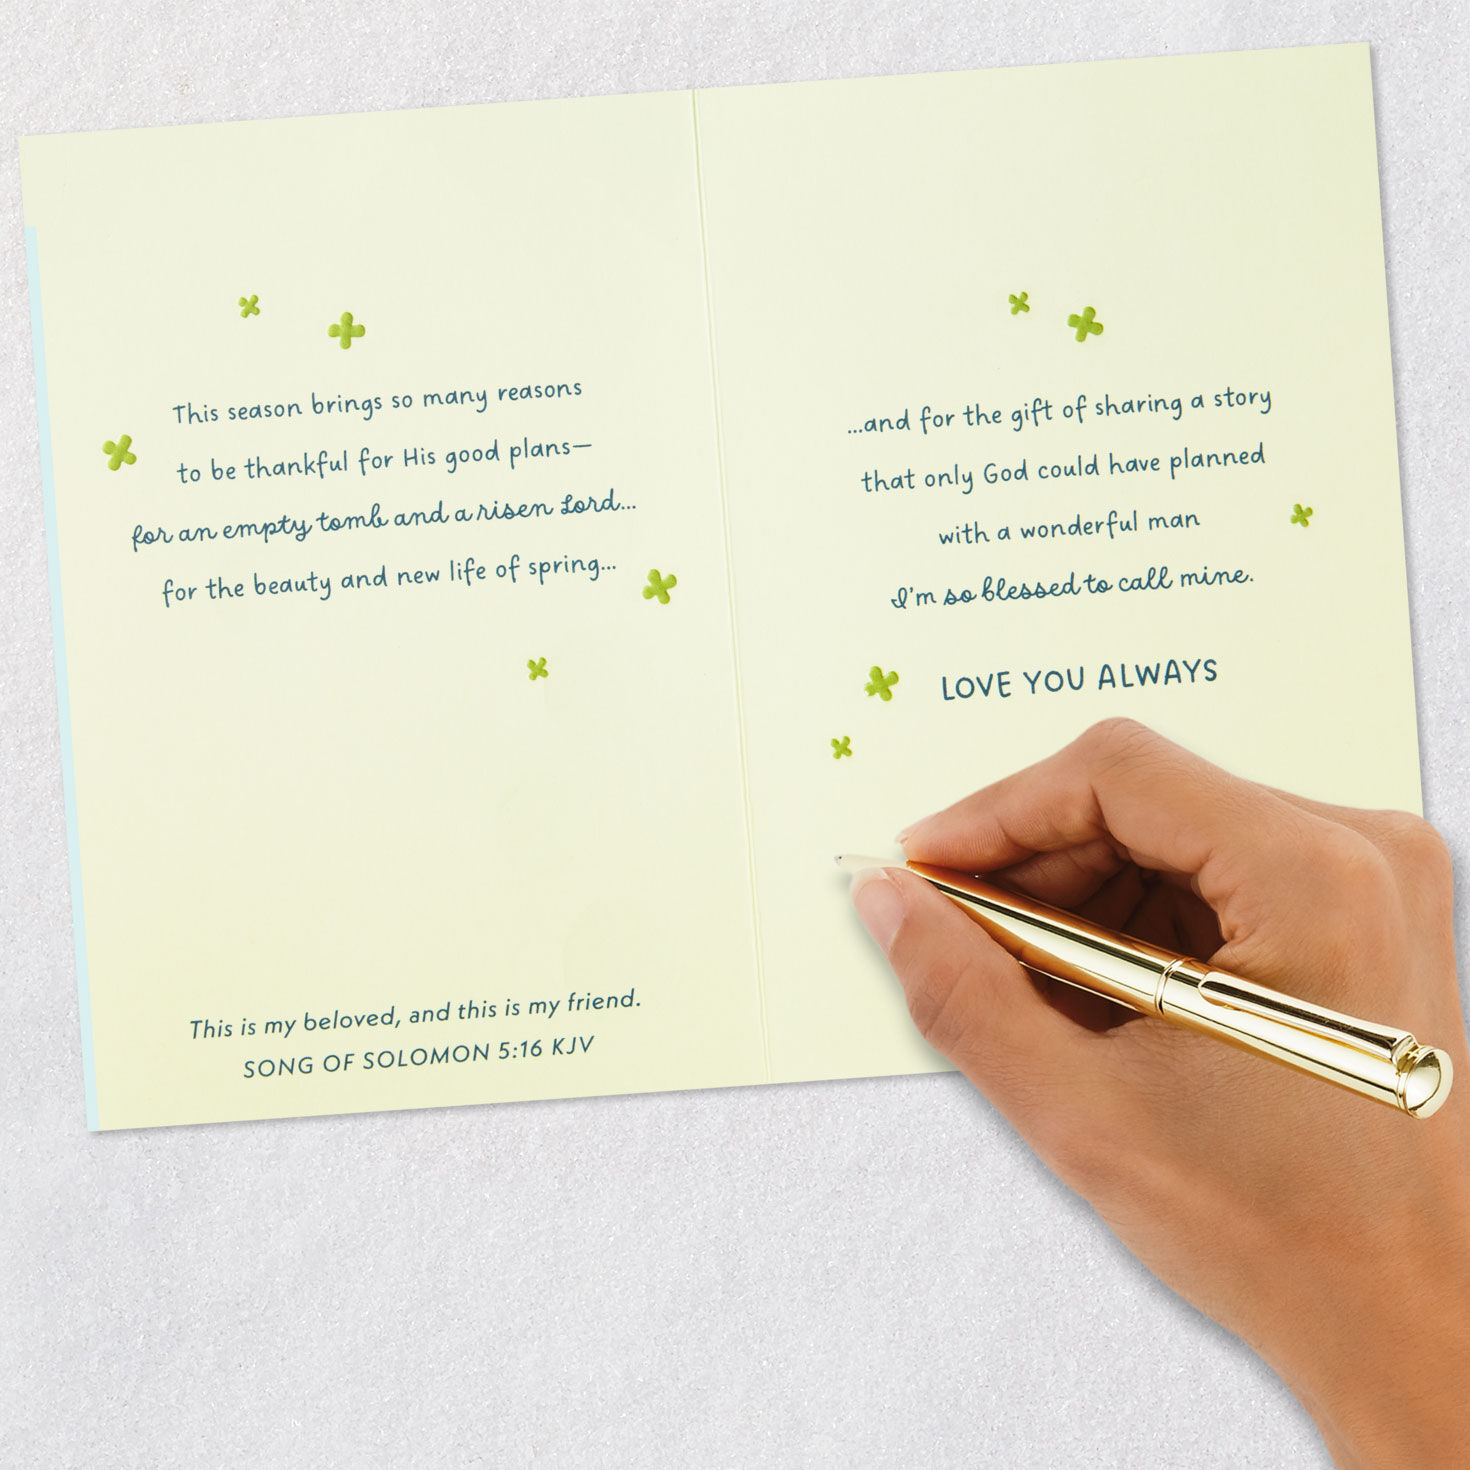 This season brings so many reasons
to be thankful for His good plans—
for an empty tomb and a risen Lord...
for the beauty and new life of spring...
This is my beloved, and this is my friend.
SONG OF SOLOMON 5:16 KJV
...and for the gift of sharing a story
that only God could have planned
with a wonderful man
I'm so blessed to call mine.
LOVE YOU ALWAYS